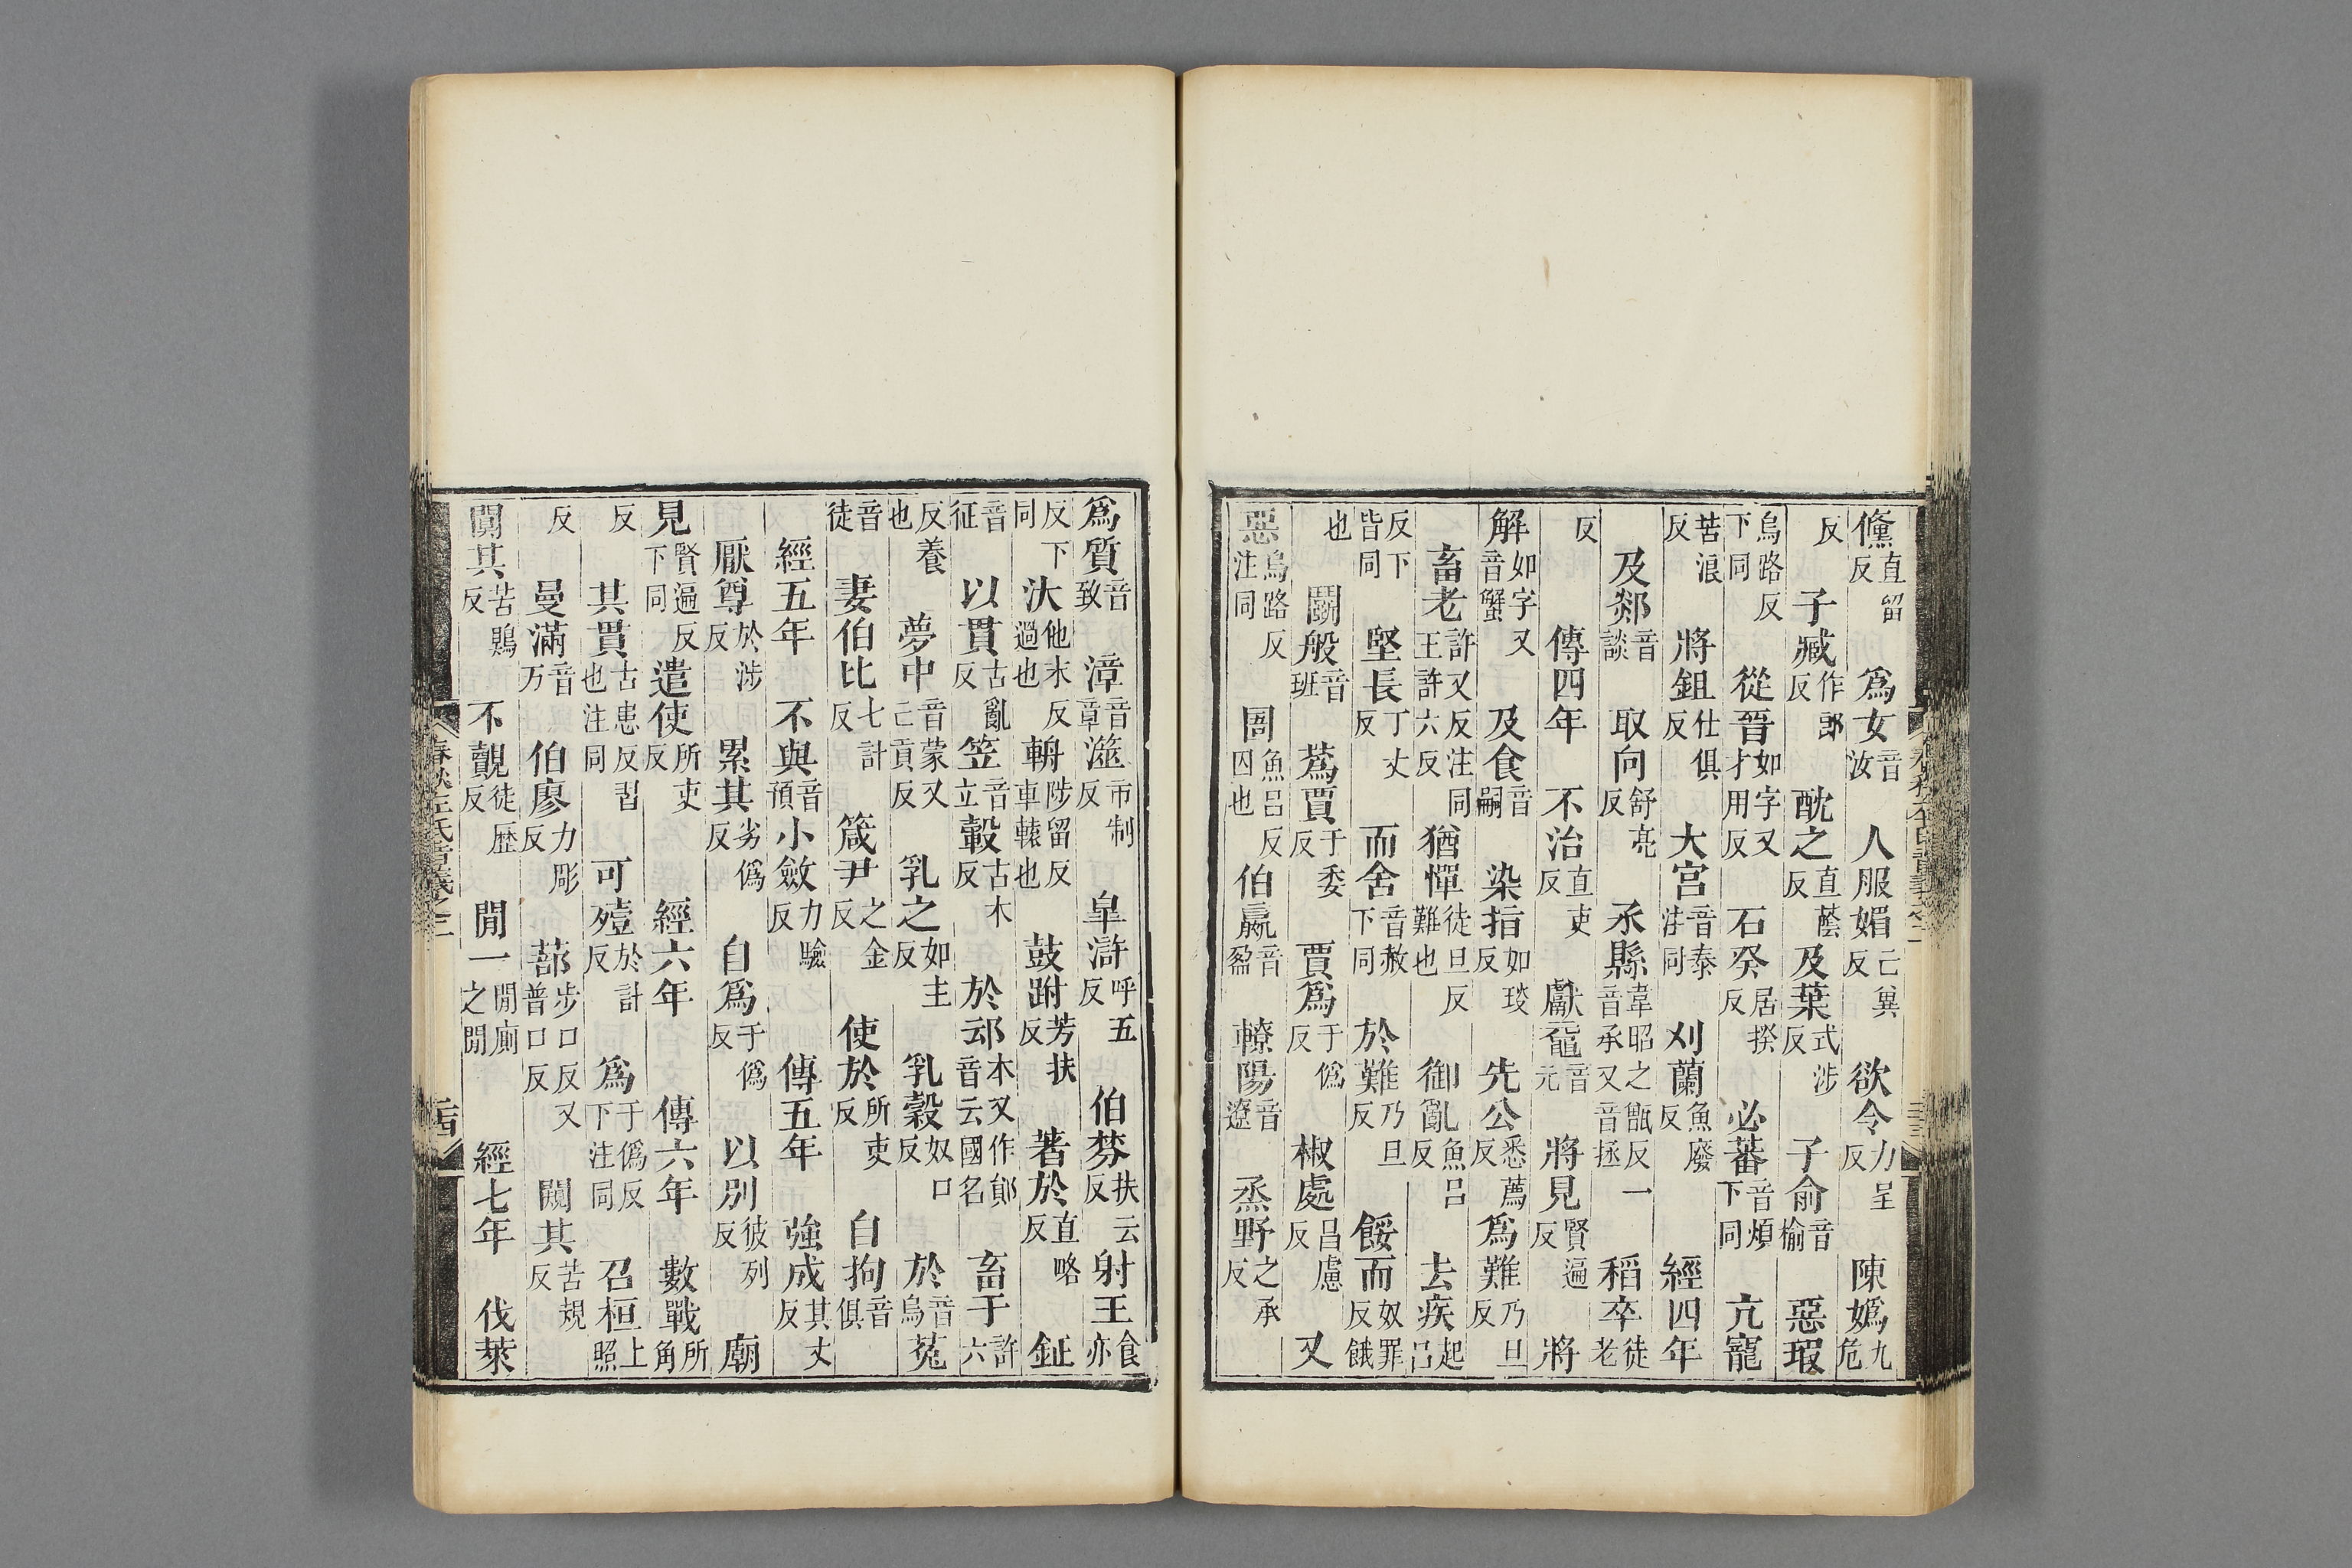 儵直留反 爲女音汝 人服媚亡兾反 欲令力呈反 陳嬀九危
反 子臧作郎反 酖之直蔭反 及葉式涉反 子俞音榆 惡瑕
烏路反下同 從晉如字又才用反 石癸居揆反 必蕃音煩下同 亢寵
苦浪反 將鉏仕俱反 大宫音泰注同 刈蘭魚廢反 經四年
及郯音談 取向舒亮反 承縣韋昭之甑反一音承又音拯 稻卒徒老
反 傳四年 不治直吏反 獻黿音元 將見賢遍反 將
解如字又音蟹 及食音嗣 染指如琰反 先公悉薦反 爲難乃旦反
畜老許又反注同王許六反 猶憚徒旦反難也 御亂魚吕反 去疾起吕
反下皆同 堅長丁丈反 而舍音赦下同 於難乃旦反 餒而奴罪反餓
也 鬬般音班 蒍賈于委反 賈爲于僞反 椒處昌慮反 又
惡烏路反注同 圄魚吕反囚也 伯嬴音盈 轑陽音遼 烝野之承反
爲質音致 漳音章 澨市制反 臯滸呼五反 伯棼扶云反 射王食亦
反下同 汰他末反過也 輈陟留反車轅也 鼓跗芳扶反 著於直略反 鉦
音征 以貫古亂反 笠音立 轂古木反 於䢵本又作鄖音云國名 畜于許六
反養也 夢中音蒙又亡貢反 乳之如主反 乳穀奴口反 於音烏 菟
音徒 妻伯比七計反 箴尹之金反 使於所吏反 自拘音俱
經五年 不與音預 小斂力驗反 傳五年 強成其丈反
厭尊於涉反 累其劣僞反 自爲于僞反 以别彼列反 廟
見賢遍反下同 遣使所吏反 經六年 傳六年 數戰所角
反 其貫古患反習也注同 可殪於計反 爲于僞反下注同 召桓上照
反 曼滿音万 伯廖力彫反 蔀步口反又普口反 闚其苦規反
闃其苦鶪反 不覿徒歷反 閒一閒廁之閒 經七年 伐萊
春秋左氏音義之三